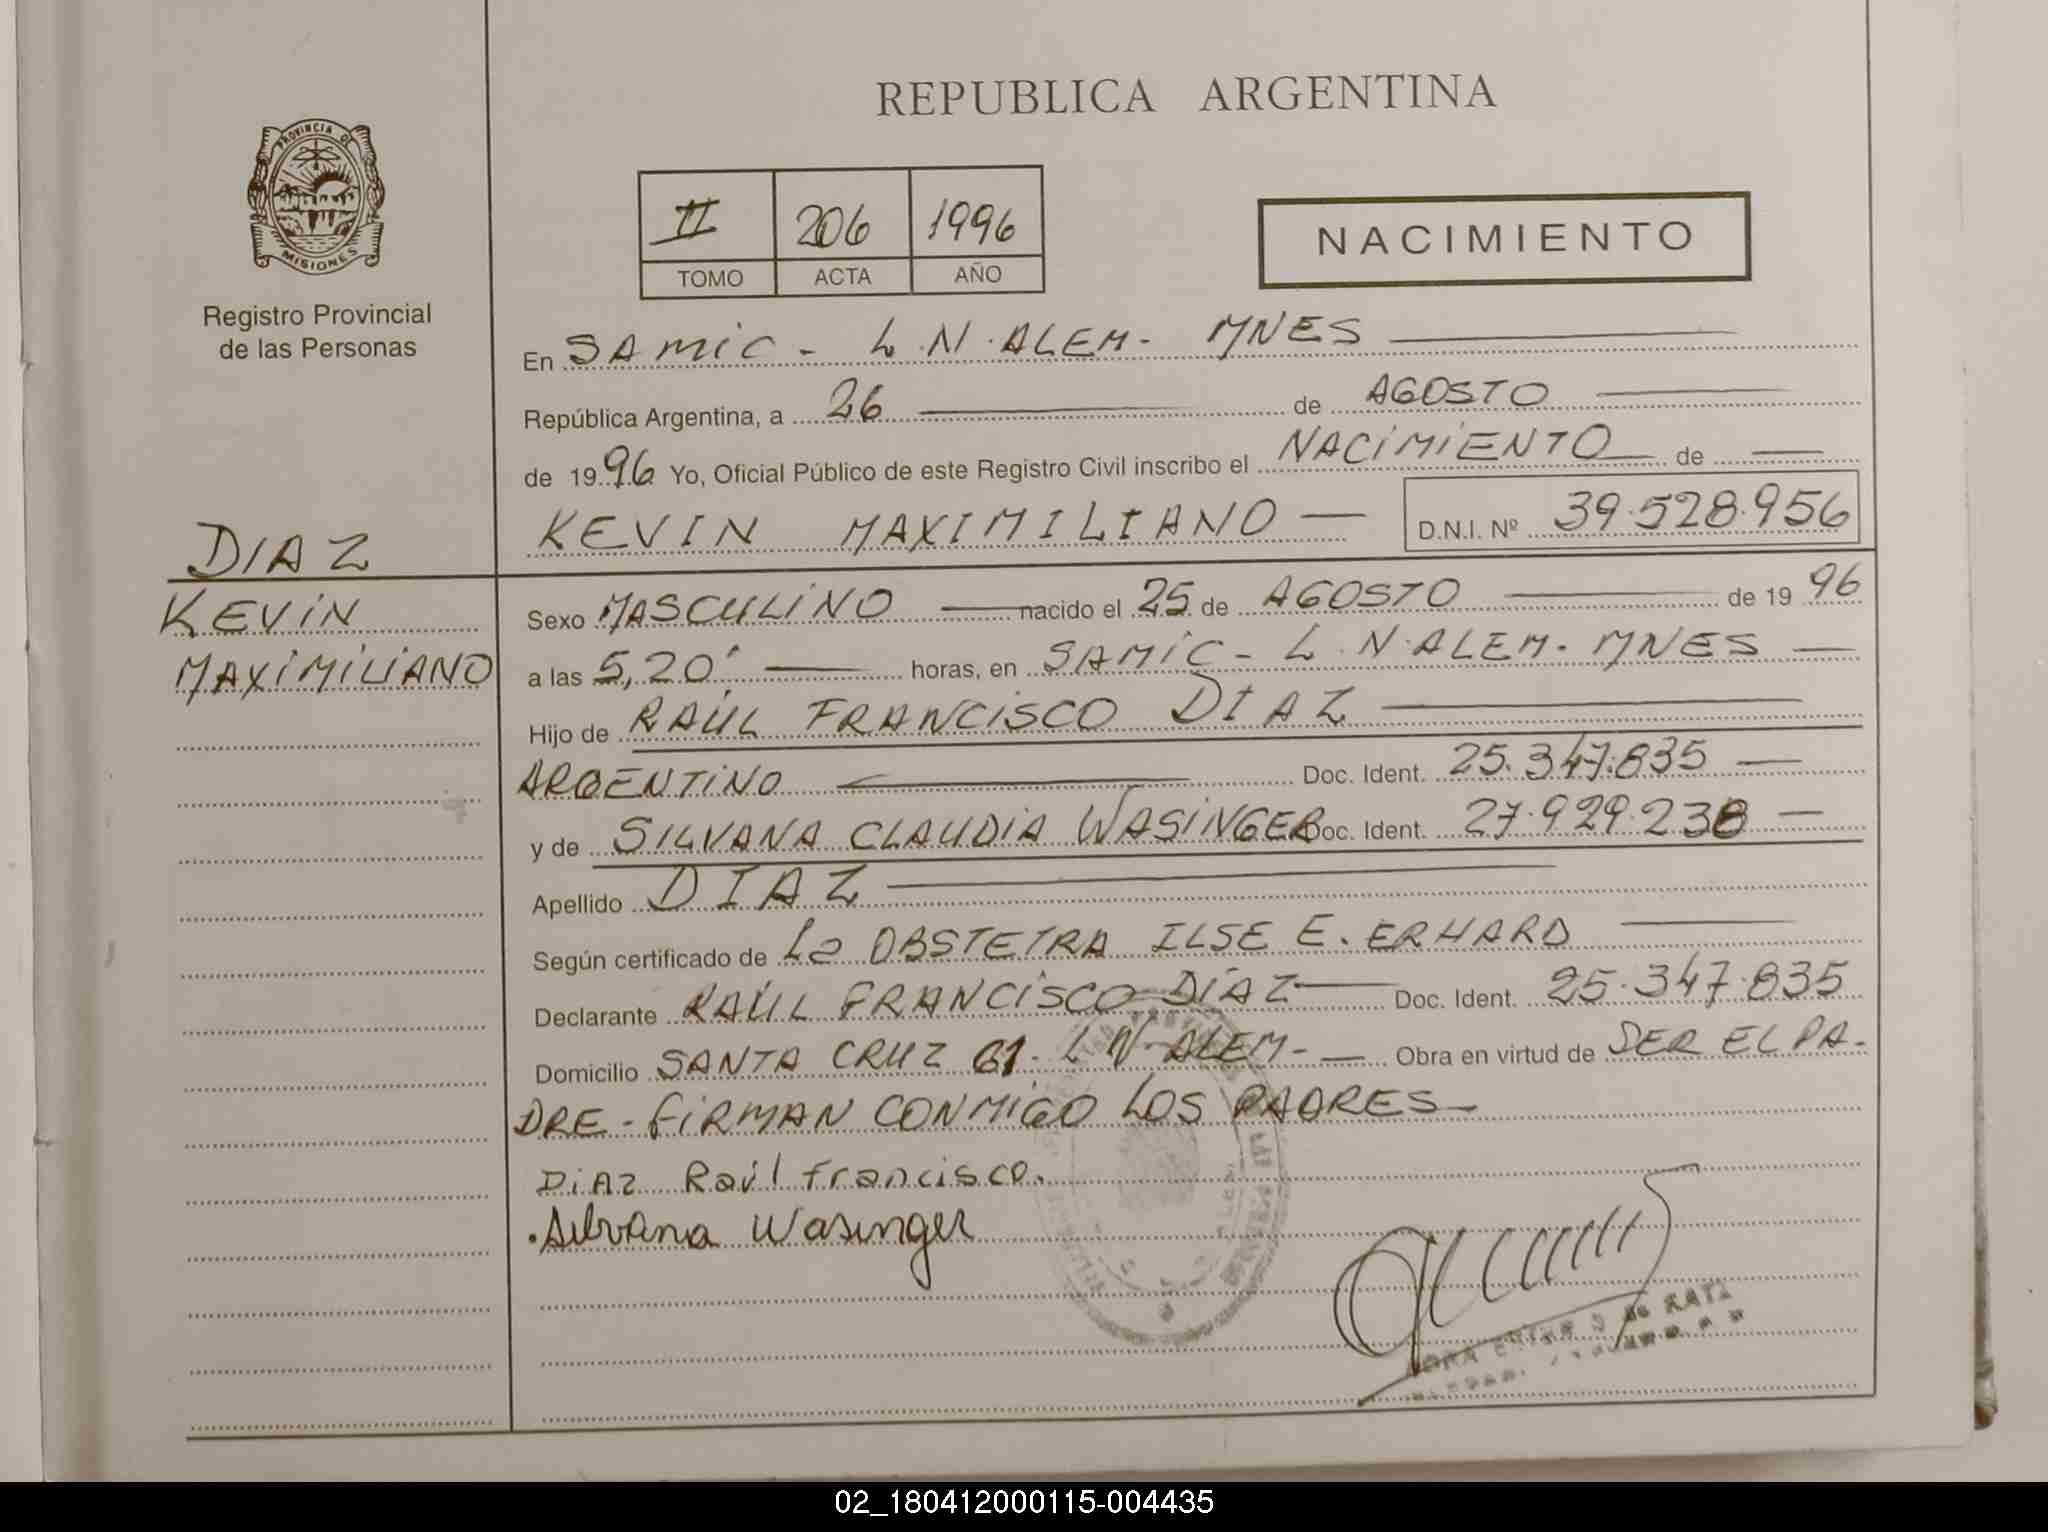 REPUBLICA ARGENTINA
PROVINCIA DE
MISIONES
Registro Provincial
de las Personas
II 206 1996
TOMO ACTA AÑO
NACIMIENTO
En SAMIC - L.N.ALEM- MNES
República Argentina, a 26 de AGOSTO
de 1996 Yo, Oficial Público de este Registro Civil inscribo el NACIMIENTO de
KEVIN MAXIMILIANO D.N.I. Nº 39.528.956
DIAZ
KEVIN
MAXIMILIANO
Sexo MASCULINO nacido el 25 de AGOSTO de 1996
a las 5,20' horas, en SAMIC - L.N.ALEM. MNES
Hijo de RAÚL FRANCISCO DIAZ
ARGENTINO Doc. Ident. 25.347.835
y de SILVANA CLAUDIA WASINGER Doc. Ident. 27.929.238
Apellido DIAZ
Según certificado de La OBSTETRA ILSE E. ERHARD
Declarante RAÚL FRANCISCO DÍAZ Doc. Ident. 25.347.835
Domicilio SANTA CRUZ 61. L N-ALEM- Obra en virtud de SER EL PA-
DRE - FIRMAN CONMIGO LOS PADRES-
DiAz Raúl francisco.
Silvana Wasinger
02_180412000115-004435